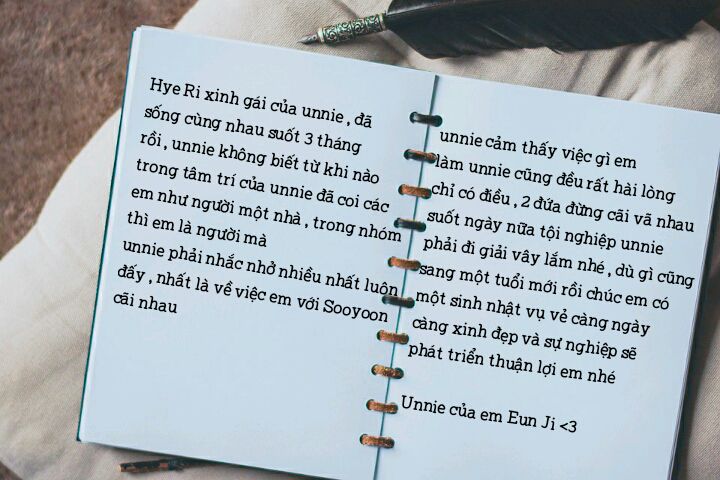 Hye Ri xinh gái của unnie , đã
sống cùng nhau suốt 3 tháng
rồi , unnie không biết từ khi nào
trong tâm trí của unnie đã coi các
em như người một nhà , trong nhóm
thì em là người mà
unnie phải nhắc nhở nhiều nhất luôn
đấy , nhất là về việc em với Sooyoon
cãi nhau
unnie cảm thấy việc gì em
làm unnie cũng đều rất hài lòng
chỉ có điều , 2 đứa đừng cãi vã nhau
suốt ngày nữa tội nghiệp unnie
phải đi giải vây lắm nhé , dù gì cũng
sang một tuổi mới rồi chúc em có
một sinh nhật vụ vẻ càng ngày
càng xinh đẹp và sự nghiệp sẽ
phát triển thuận lợi em nhé
Unnie của em Eun Ji <3